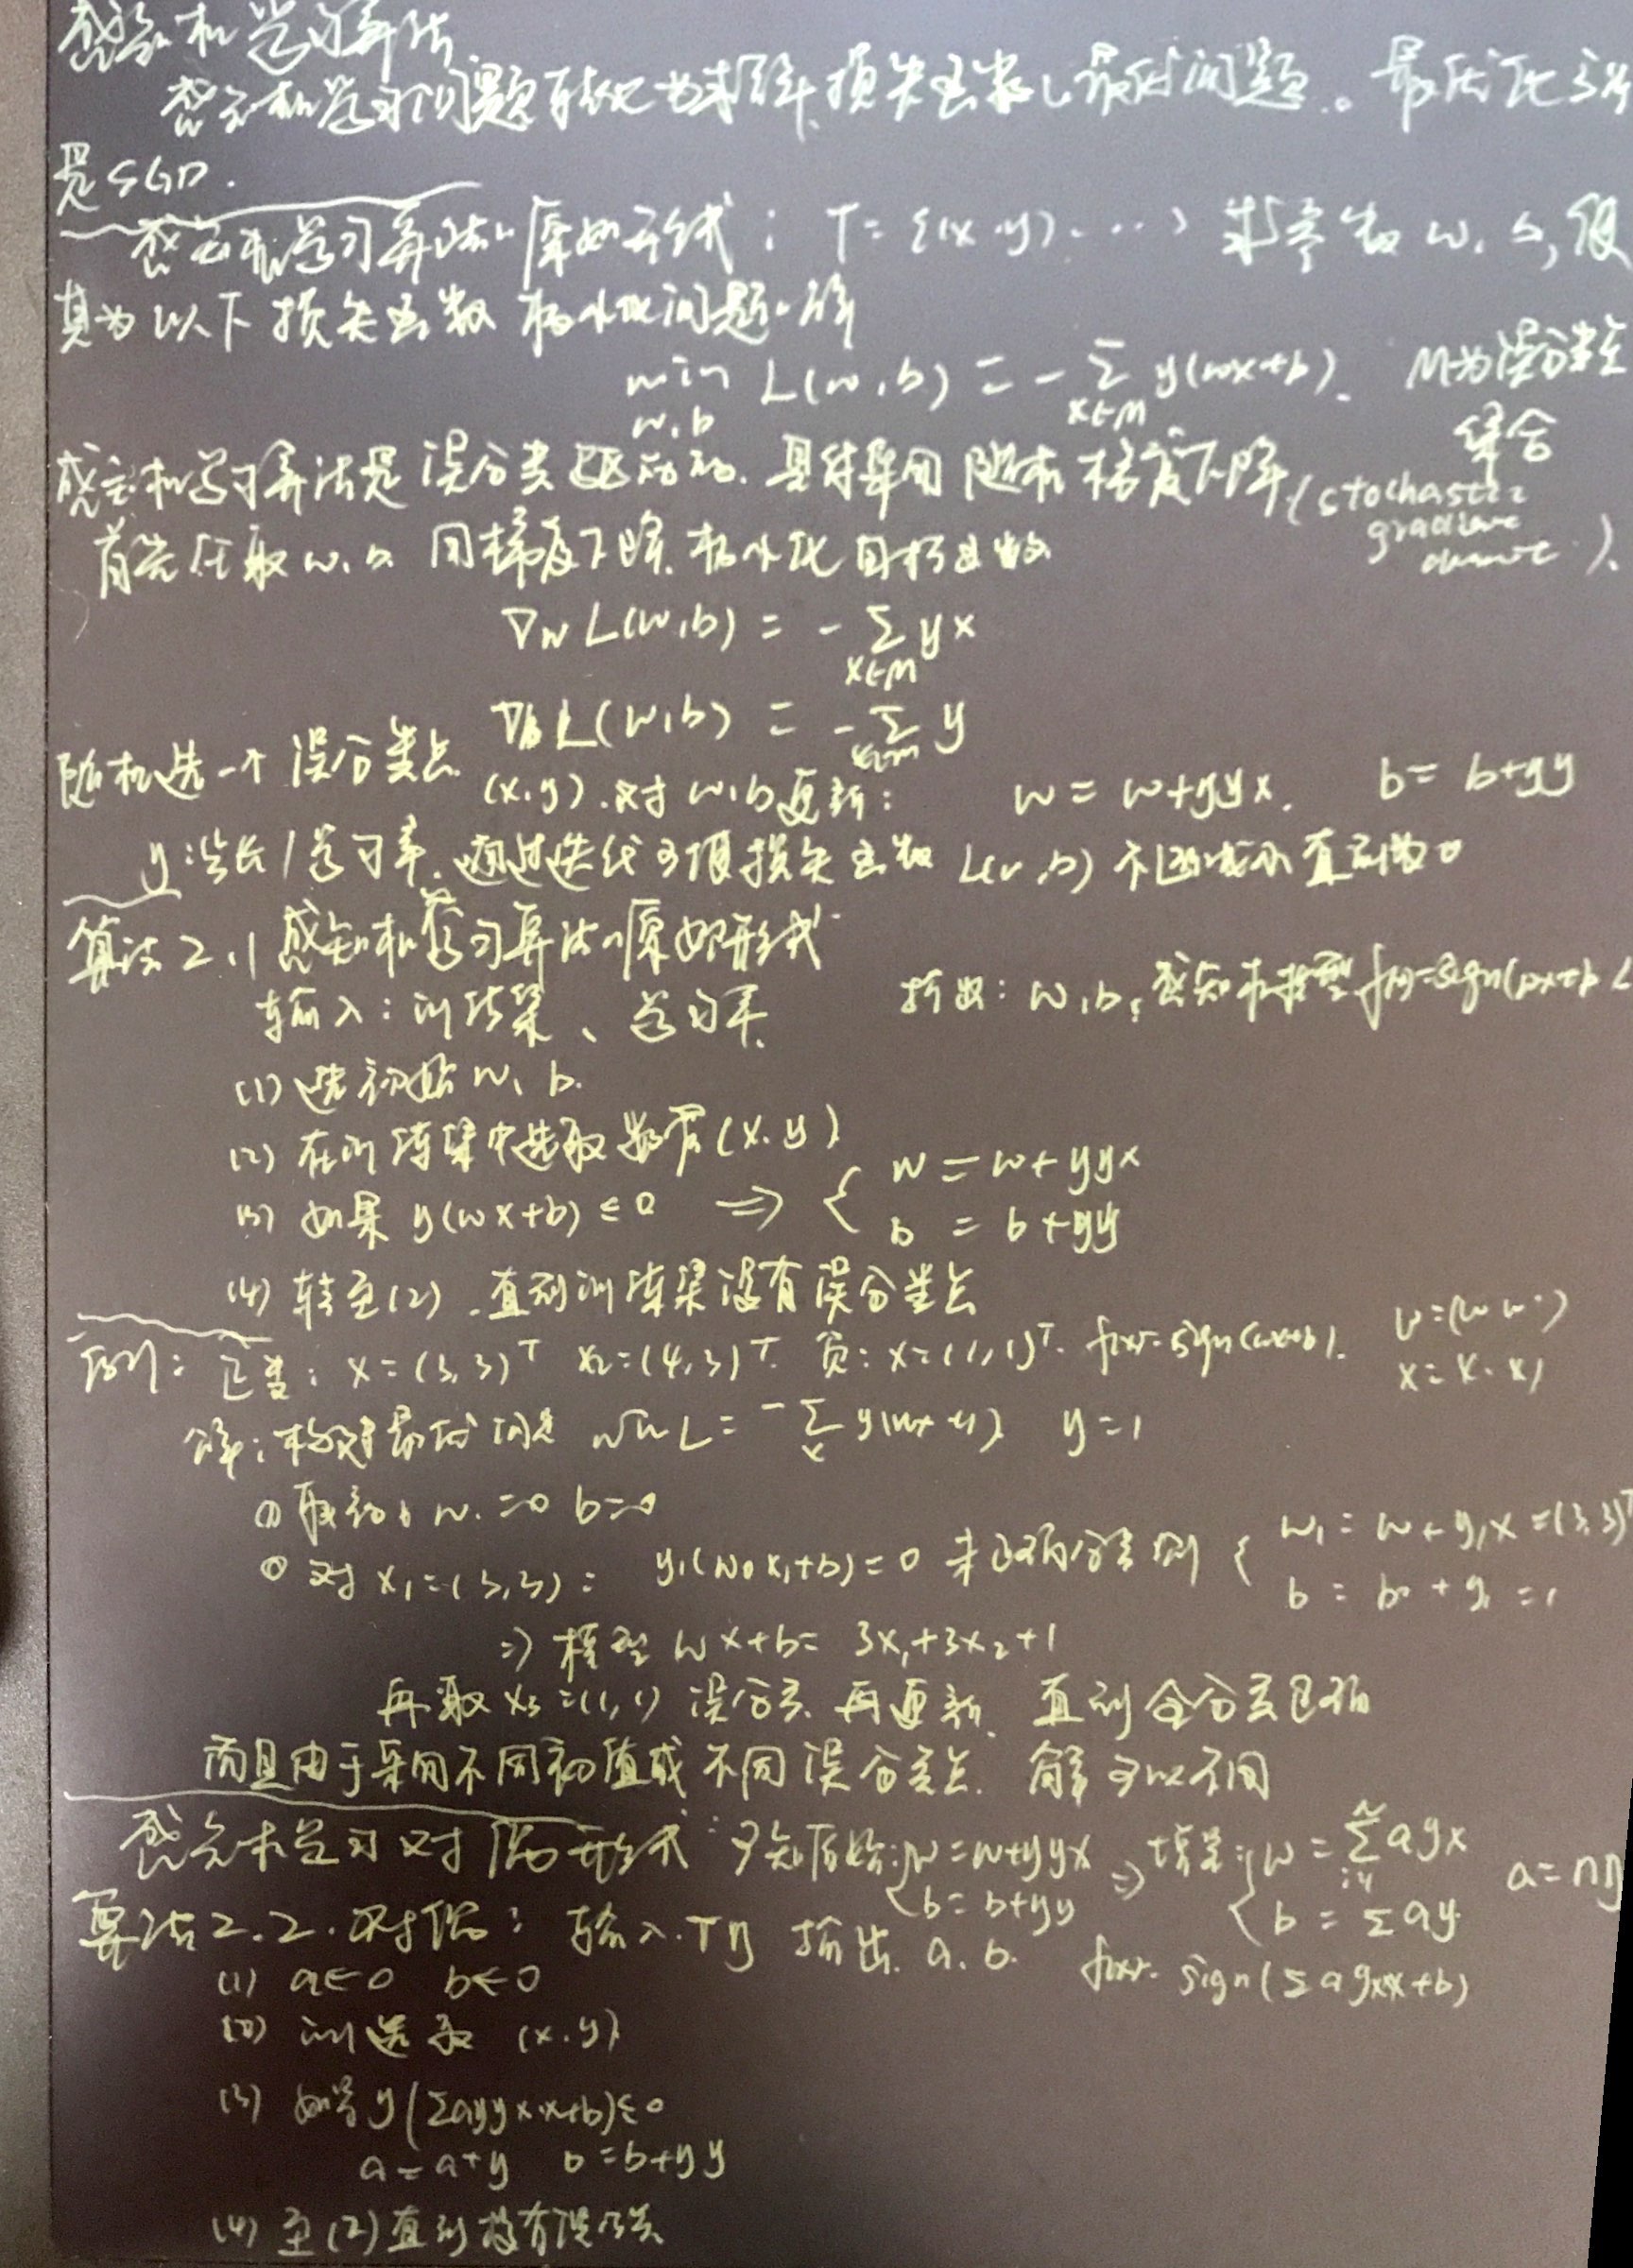 感知机学习算法.
感知机学习问题转化为求解损失函数的最优化问题。最优化方
是SGD.
感知机学习算法的原始形式: T={(x.y)....} 求参数 w. b, 使
其为以下损失函数极小化问题的解
min L(w,b) = -Σ y(wx+b). M为误分类点
w,b x∈M 集合
感知机学习算法是误分类驱动的. 具体采用随机梯度下降 (stochastic gradient
首先任取w.b 用梯度下降.极小化目标函数
∇w L(w,b) = - Σ yx
x∈M
∇b L(w,b) = - Σ y
x∈M
随机选一个误分类点 (x.y).对 w,b更新: w = w+ηyx. b= b+ηy
η:步长/学习率. 通过迭代可使损失函数 L(w,b) 不断减小直到为0
算法2.1 感知机学习算法的原始形式
输入: 训练集、学习率. 输出: w,b; 感知机模型 f(x)=sign(wx+b
(1) 选初始w、b.
(2) 在训练集中选取数据(x.y)
(3) 如果 y(wx+b) ≤0 ⇒ { w = w+ηyx
b = b+ηy
(4) 转至(2). 直到训练集没有误分类点
例: 正类: x=(3,3)ᵀ x₂=(4,3)ᵀ. 负: x=(1,1)ᵀ. f(x)=sign(wx+b). w=(w w·)
x=x·x)
解: 构建最优问题 min L= -Σ y(wx+b) η=1
x
① 取初 w.=0 b=0
② 对 x₁=(3,3): y₁(w₀x₁+b)=0 未正确分类 则 { w₁= w+y₁x =(3,3)ᵀ
b = b₀+y₁ =1
⇒ 模型 wx+b= 3x₁+3x₂+1
再取 x₃=(1,1) 误分类. 再更新. 直到全分类正确
而且由于采用不同初值或不同误分类点. 解可以不同
感知机学习对偶形式: 已知原始:{w=w+ηyx ⇒ 增量:{w = Σ ayx a=nη
{b= b+ηy {b = Σ ay
算法2.2. 对偶: 输入.Tη 输出. a.b. f(x)= sign(Σ ayxx+b)
(1) a←0 b←0
(2) 训选取 (x.y)
(3) 如果y(Σayyx·x+b)≤0
a=a+η b=b+ηy
(4) 至(2)直到没有误分类